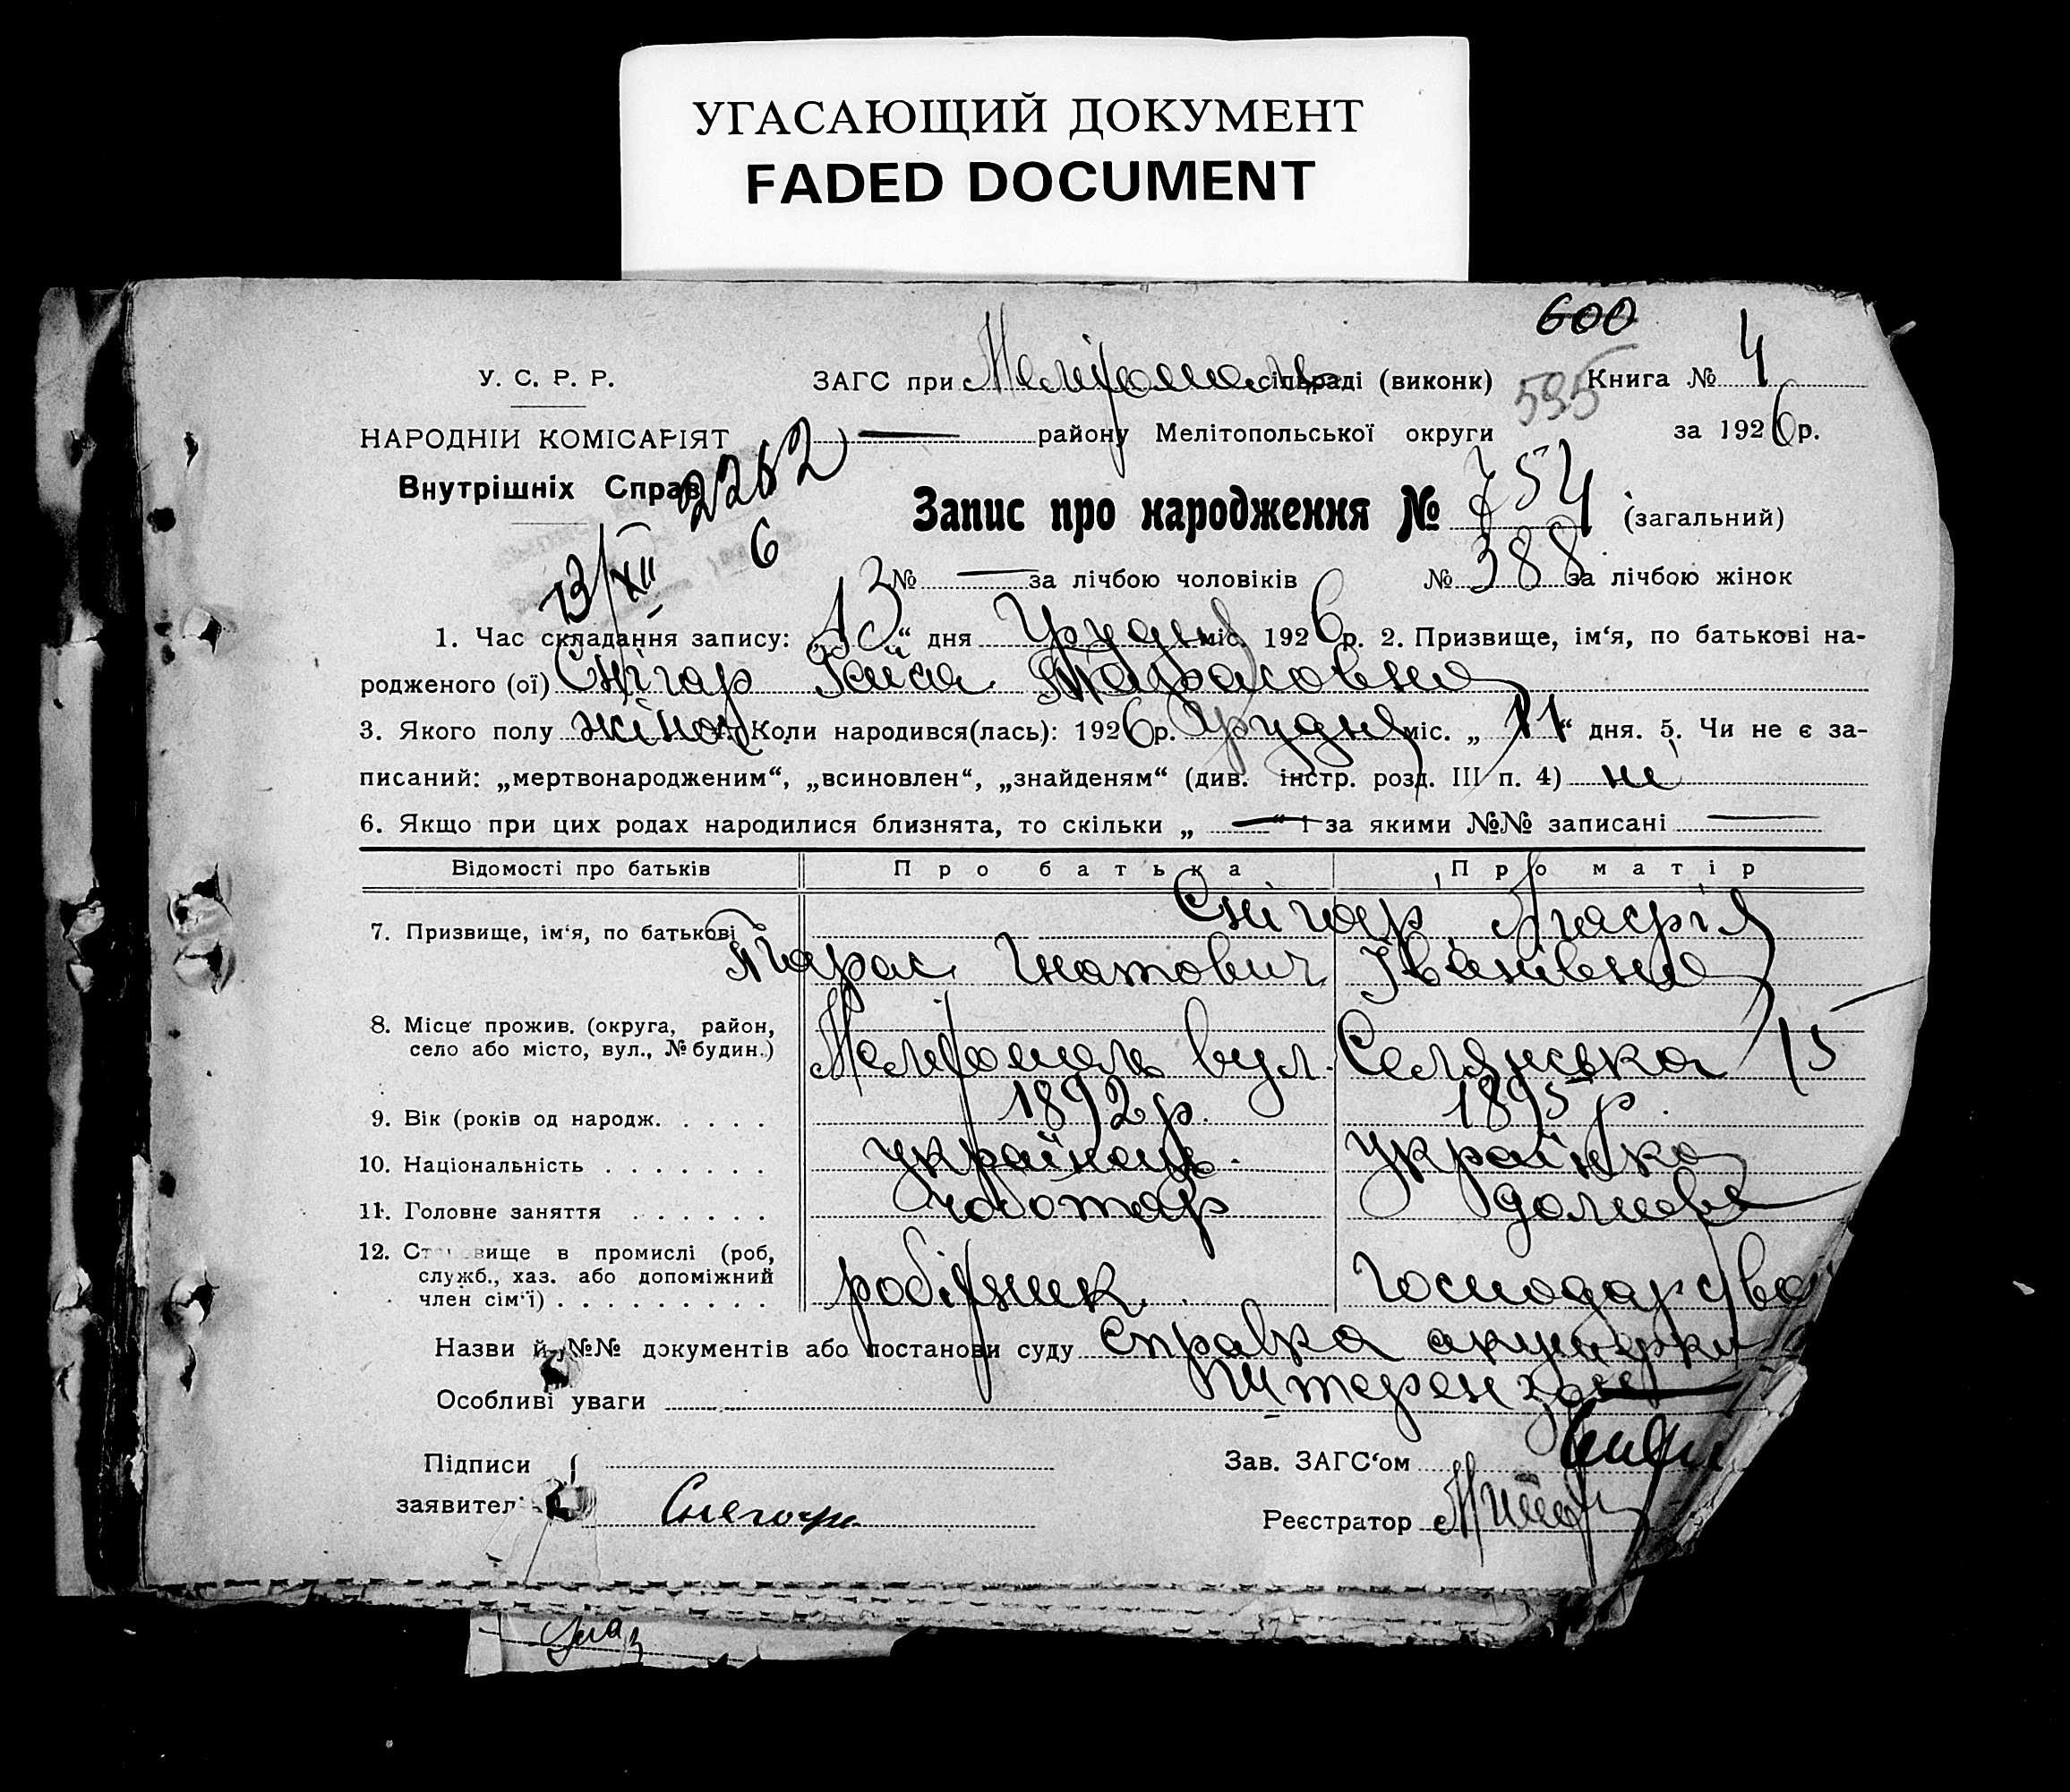 УГАСАЮЩИЙ ДОКУМЕНТ
FADED DOCUMENT
600
У. С. Р. Р.
ЗАГС при Мелітополь сільраді (виконк) 595 Книга № 4
НАРОДНІЙ КОМІСАРІЯТ
— району Мелітопольської округи за 1926 р.
Внутрішніх Справ
2262
6
13/XII
Запис про народження № 754 (загальний)
№ — за лічбою чоловіків № 388 за лічбою жінок
1. Час складання запису: „13“ дня Грудня міс. 1926 р. 2. Призвище, ім‘я, по батькові на-
родженого (ої) Снігар Раїса Тарасовна
3. Якого полу жіноч. 4. Коли народився(лась): 1926 р. Грудня міс. „11“ дня. 5. Чи не є за-
писаний: „мертвонародженим“, „всиновлен“, „знайденям“ (див. інстр. розд. III п. 4) ні
6. Якщо при цих родах народилися близнята, то скільки „—“ і за якими №№ записані —
Відомості про батьків Про батька Про матір
7. Призвище, ім‘я, по батькові Снігар Агафія
Тарас Гнатович Іванівна
8. Місце прожив. (округа, район,
село або місто, вул., № будин.) Мелітополь вул. Селянська 15
9. Вік (років од народж. . . . . 1892 р. 1895 р.
10. Національність . . . . . . . українець. українка
11. Головне заняття . . . . . . чоботар домове
12. Становище в промислі (роб,
служб., хаз. або допоміжний
член сім‘ї) . . . . . . . . . робітник господарство
Назви й №№ документів або постанови суду Справка акушерки
Особливі уваги
Підписи
Зав. ЗАГС‘ом
заявителів Снегорь
Реєстратор